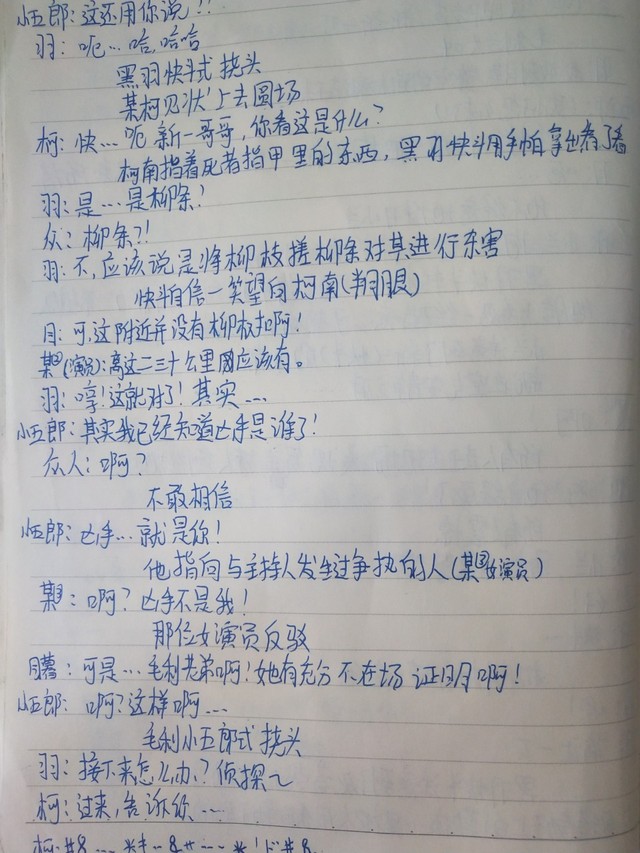 小五郎：这还用你说！！
羽：呃…哈,哈哈
黑羽快斗式 挠头
某柯见状上去圆场
柯：快… 呃 新一哥哥，你看这是什么？
柯南指着死者指甲里的东西，黑羽快斗用手帕拿出看了看
羽：是…是柳条！
众：柳条?!
羽：不,应该说是将柳枝搓柳条对其进行杀害
快斗自信一笑望向柯南(半月眼)
目：可,这附近并没有柳枝啊！
某(演员)：离这二三十公里圆应该有。
羽：哼！这就对了！其实…
小五郎：其实我已经知道凶手是谁了！
众人：啊？
不敢相信
小五郎：凶手…就是你！
他指向与主持人发生过争执的人(某女演员)
某：啊？凶手不是我！
那位女演员反驳
目暮：可是…毛利老弟啊！她有充分 不在场 证明啊！
小五郎：啊？这样啊…
毛利小五郎式 挠头
羽：接下来怎么办？侦探~
柯：过来,告诉你…
柯:#&